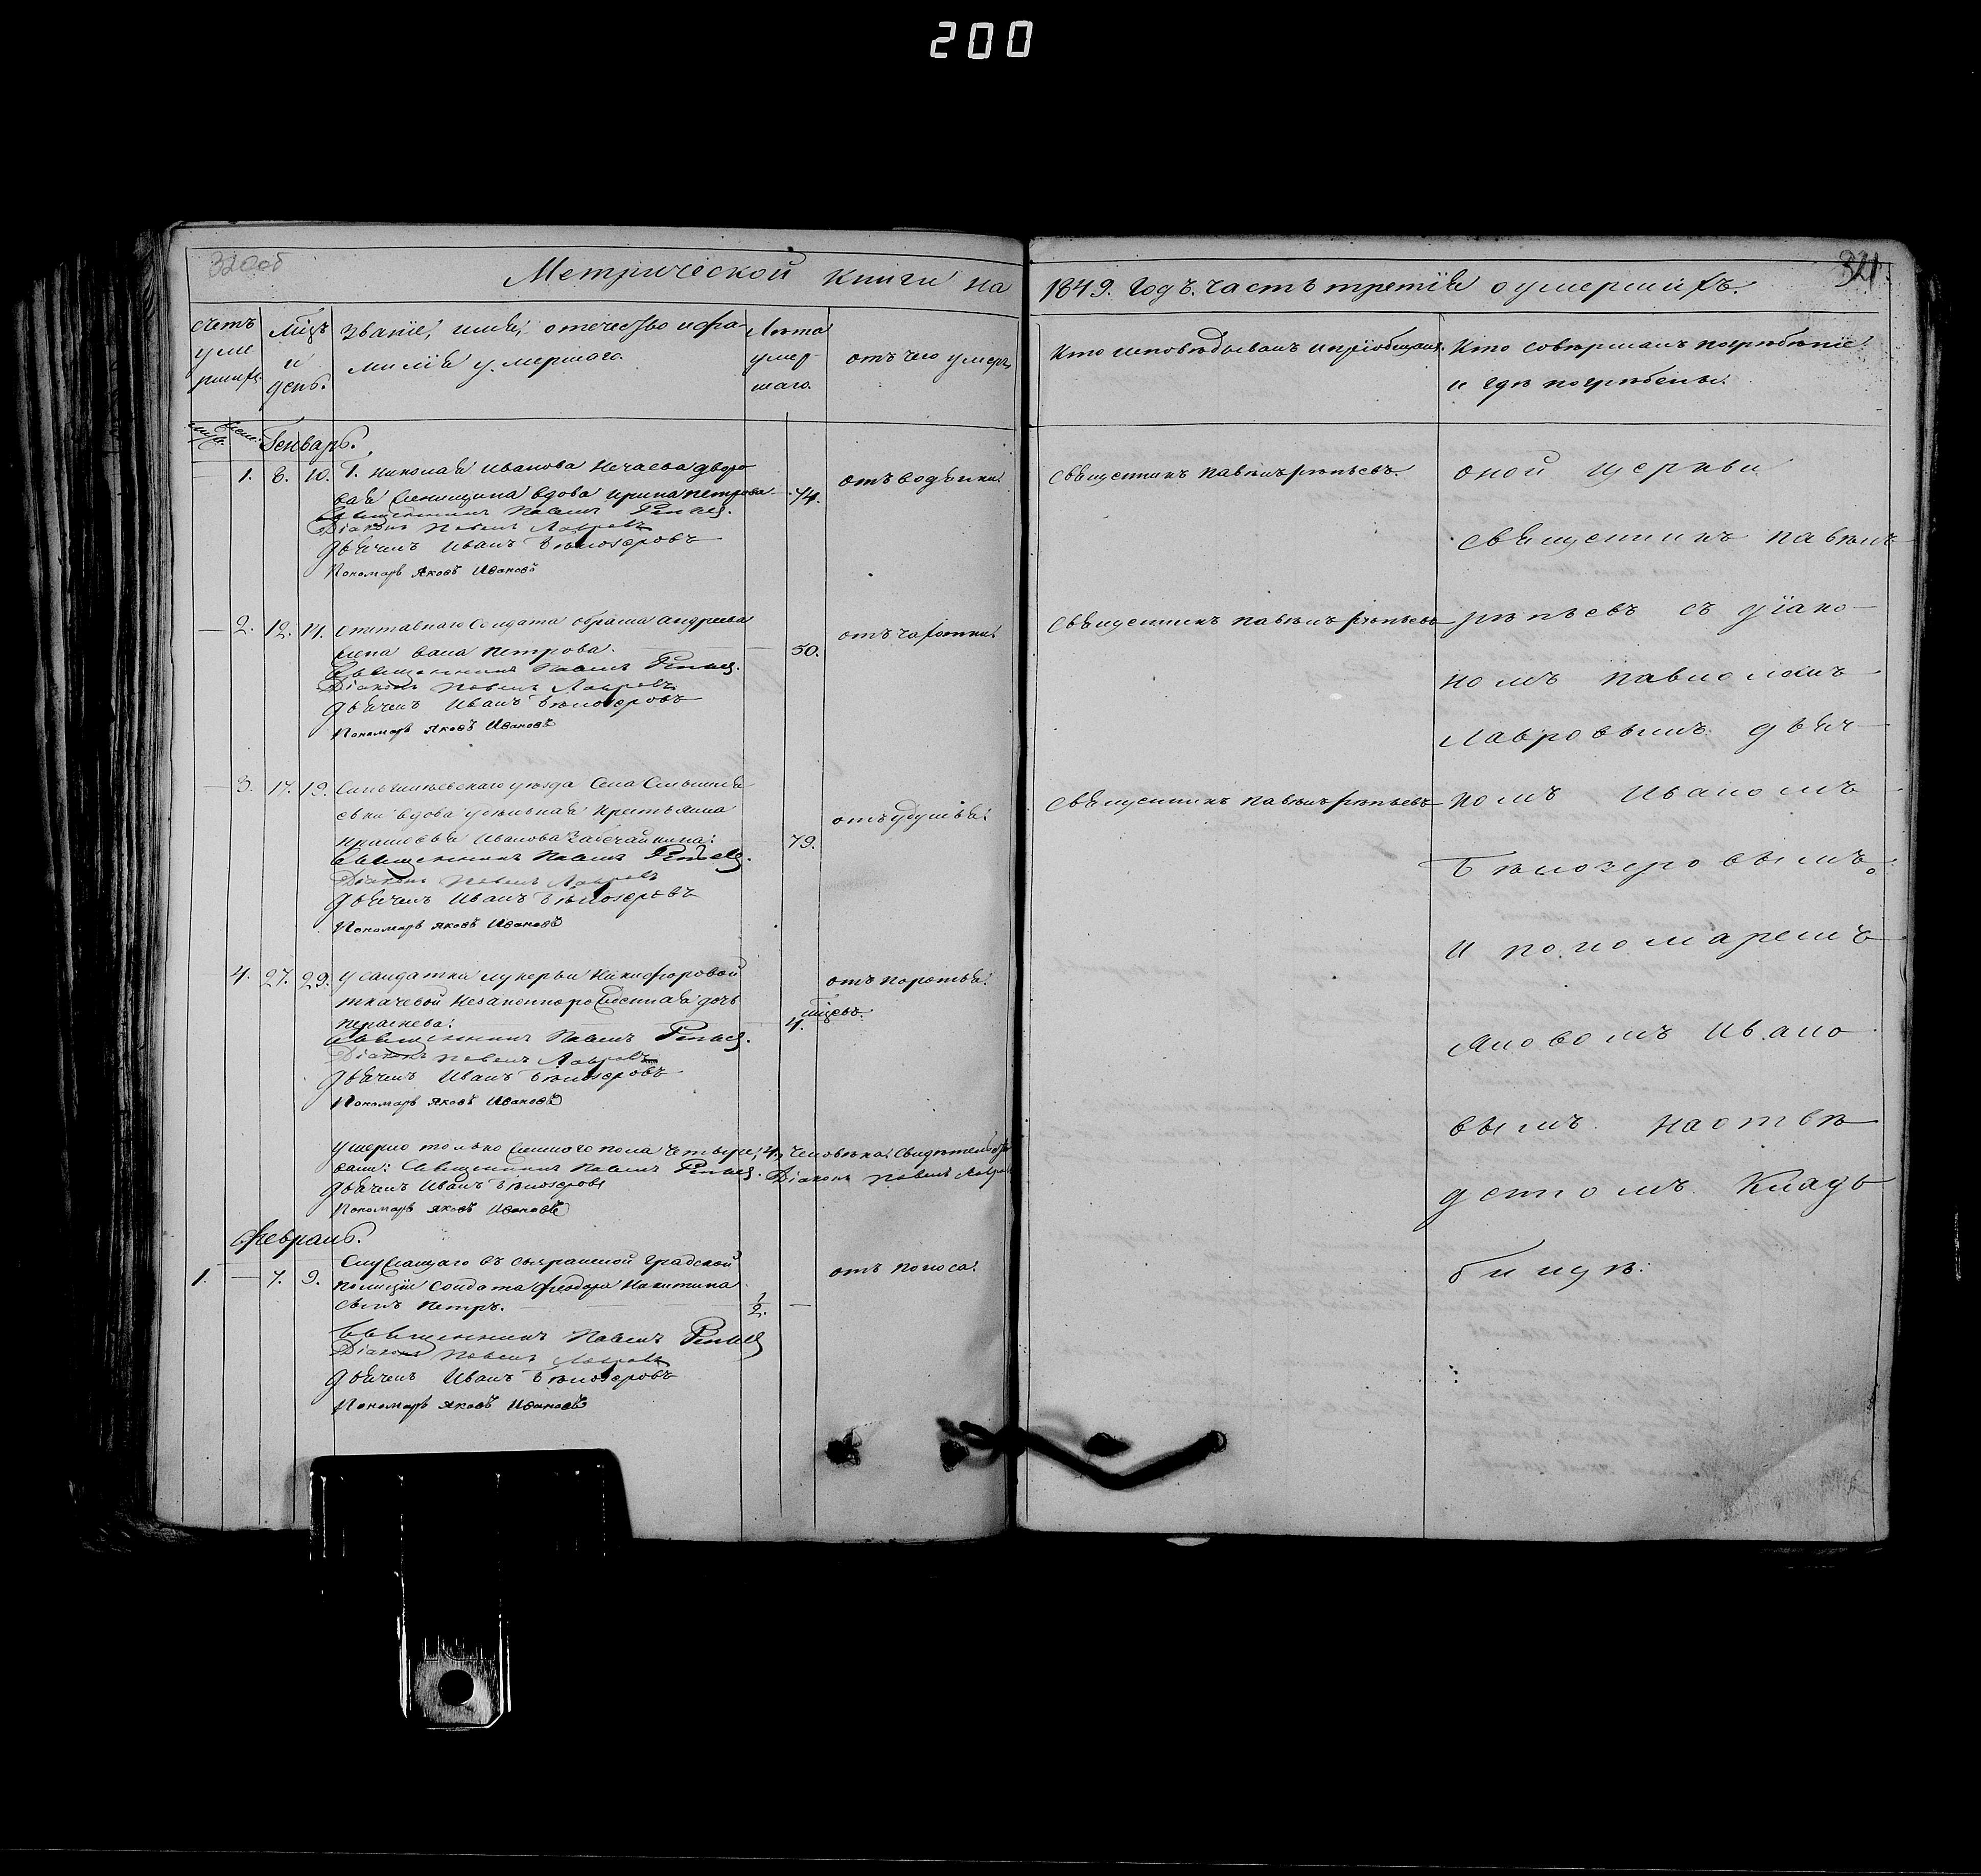 200
320об
321.
Метрической книги на
1849. Годъ. часть третія о умершихъ.
счетъ умершихъ.
Мцъ и день.
Званіе, имя, отечество и фамилія умершаго.
Лѣта умершаго.
отъ чего умеръ
Кто исповѣдывалъ и пріобщалъ.
Кто совѣршалъ погрѣбѣніе и гдѣ погрѣбены.
Генварь.
1. 8. 10. Г. Николая Иванова Нечаева дворо
вая женщина вдова ирина петрова 74. отъ водянки.
Священникъ Павелъ
Діаконъ Павелъ Лавровъ
Дьячекъ Иванъ Бѣлозеровъ
Пономарь Яковъ Ивановъ
2. 12. 14. отставнаго Солдата абрама андреева
жена Васа петрова. 50. отъ чахотки.
Священникъ Павелъ
Діаконъ Павелъ Лавровъ
Дьячекъ Иванъ Бѣлозеровъ
Пономарь Яковъ Ивановъ
3. 17. 19. уѣзда Села
вдова удѣльная крестьянка
Иванова 79. отъ удушья.
Священникъ Павелъ
Діаконъ Павелъ Лавровъ
Дьячекъ Иванъ Бѣлозеровъ
Пономарь Яковъ Ивановъ
4. 27. 29. у салдатки лукерьи Никифоровой
ткачевой незаконнорожденная дочь
мцевъ. 4.
Священникъ Павелъ
Діаконъ Павелъ Лавровъ
Дьячекъ Иванъ Бѣлозеровъ
Пономарь Яковъ Ивановъ
умерло только женского пола четыре; 4., человѣка:
Священникъ Павелъ Діаконъ Павелъ Лавровъ
Дьячекъ Иванъ Бѣлозеровъ
Пономарь Яковъ Ивановъ
Февраль.
1. 7. 9. Служащаго въ сызранской градской
полиціи Солдата феодора Никитина
сынъ петръ. 1/2. отъ поноса.
Священникъ Павелъ
Діаконъ Павелъ Лавровъ
Дьячекъ Иванъ Бѣлозеровъ
Пономарь Яковъ Ивановъ
священникъ павелъ рѣпьевъ.
священникъ павелъ рѣпьевъ
священникъ павелъ рѣпьевъ
оной церкви
священникъ павелъ
рѣпьевъ съ діако
номъ павломъ
лавровымъ дьяч
комъ Иваномъ
Бѣлозеровымъ
и пономаремъ
яковомъ ивано
вымъ на отвѣ
денномъ Клад
бищѣ.